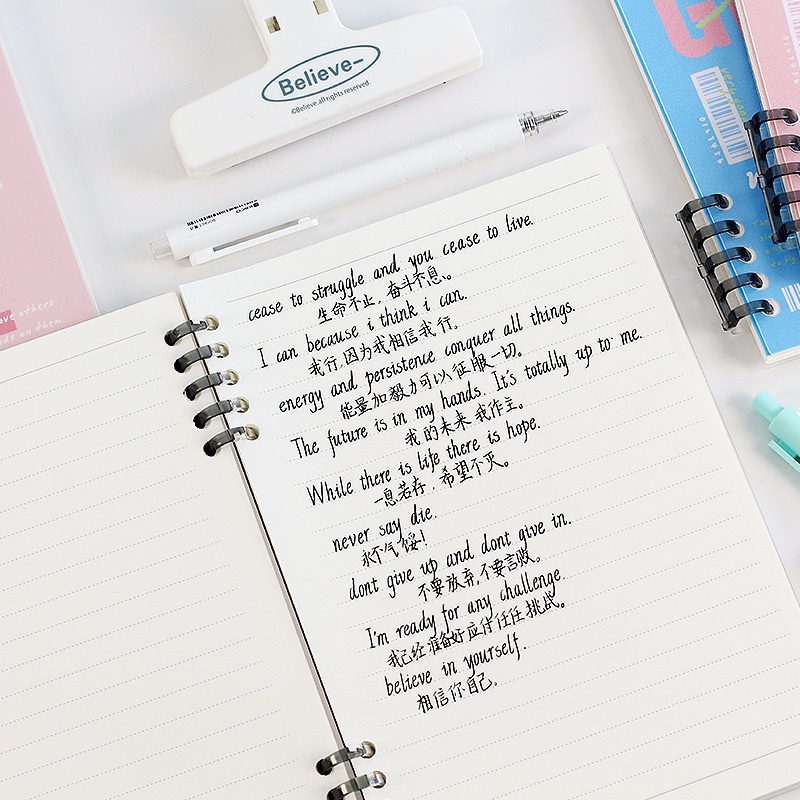 Believe-
©Believe.all rights reserved.
cease to struggle and you cease to live.
生命不止,奋斗不息。
I can because i think i can.
我行,因为我相信我行。
energy and persistence conquer all things.
能量加毅力可以征服一切。
The future is in my hands. It's totally up to me.
我的未来我作主。
While there is life there is hope.
一息若存,希望不灭。
never say die.
永不气馁!
dont give up and dont give in.
不要放弃,不要言败。
I'm ready for any challenge.
我已经准备好应付任何挑战。
believe in yourself.
相信你自己。
others
on them.